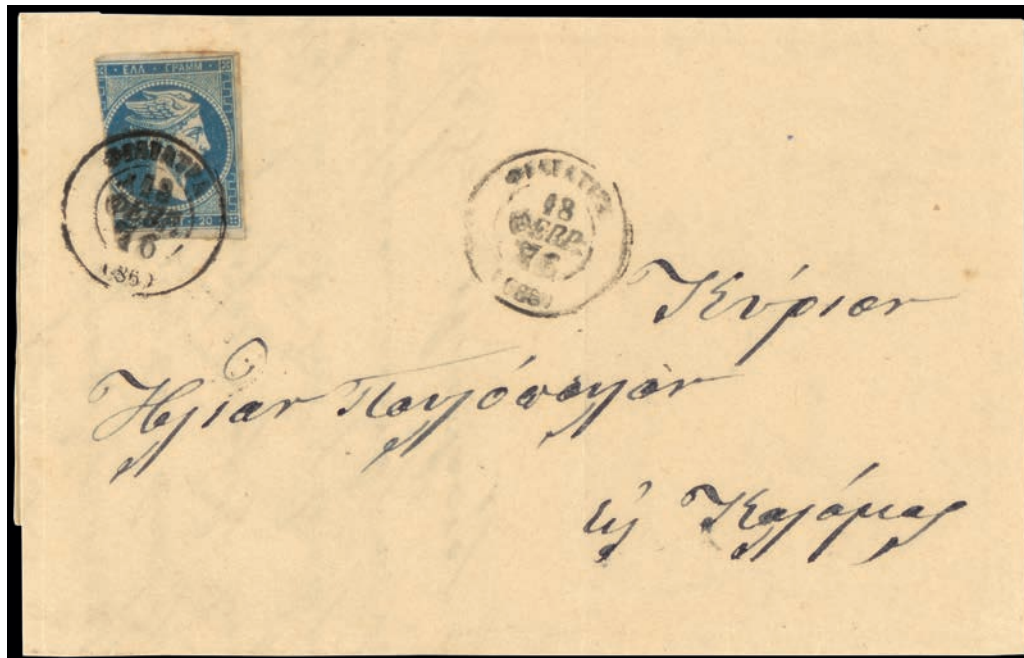 ΕΛΛ · ΓΡΑΜΜ
20
18
ΦΕΒΡ.
76
(86)
ΦΙΛΙΑΤΡΑ
18
ΦΕΒΡ.
(86)
Κύριον
Ηλίαν
εἰς Καλάμας